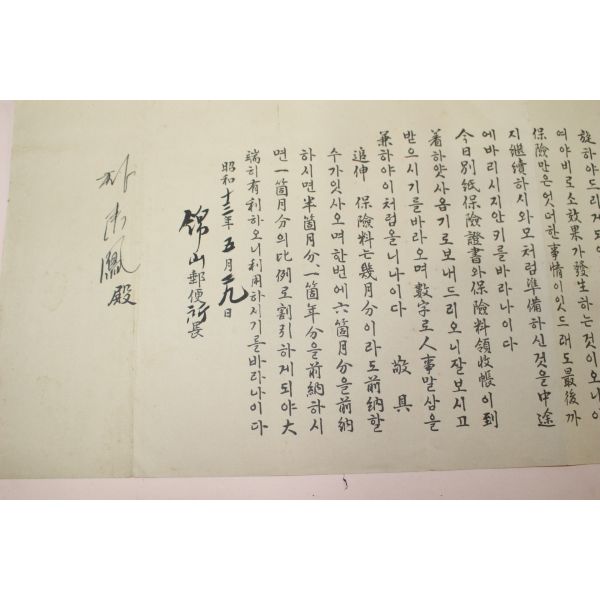 旋하야드리게되
여야비로소效果가發生하는것이오나이
保險만은엇더한事情이잇드래도最後까
지繼續하시와모처럼準備하신것을中途
에바리시지안키를바라나이다
今日別紙保險證書와保險料領收帳이到
着하얏사옵기로보내드리오니잘보시고
받으시기를바라오며數字로人事말삼을
兼하야이처럼올니나이다 敬具
追伸 保險料는幾月分이라도前納할
수가잇사오며한번에六箇月分을前納
하시면半箇月分、一箇年分을前納하시
면一箇月分의比例로割引하게되야大
端히有利하오니利用하시기를바라나이다
昭和十二年五月廿九日
錦山郵便所長
鳳殿